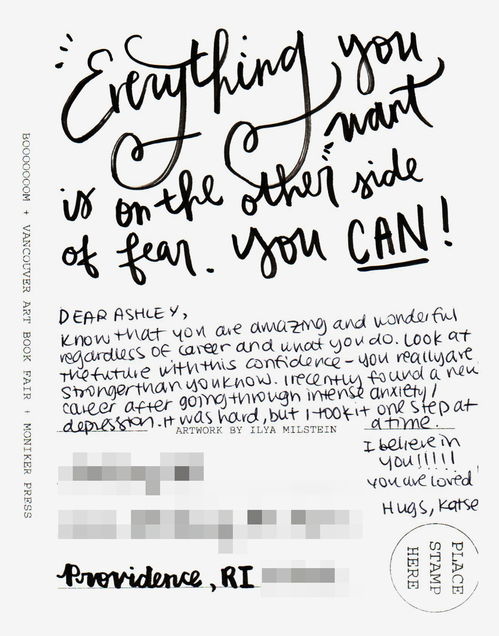 Everything you
want
is on the other side
of fear. You CAN!
DEAR ASHLEY,
Know that you are amazing and wonderful
regardless of career and what you do. Look at
the future with this confidence - you really are
stronger than you know. I recently found a new
career after going through intense anxiety/
depression. It was hard, but I took it one step at
a time.
ARTWORK BY ILYA MILSTEIN
I believe in
YOU!!!!!
you are loved
Hugs, Katse
Providence, RI
PLACE
STAMP
HERE
BOOOOOOOM + VANCOUVER ART BOOK FAIR + MONIKER PRESS